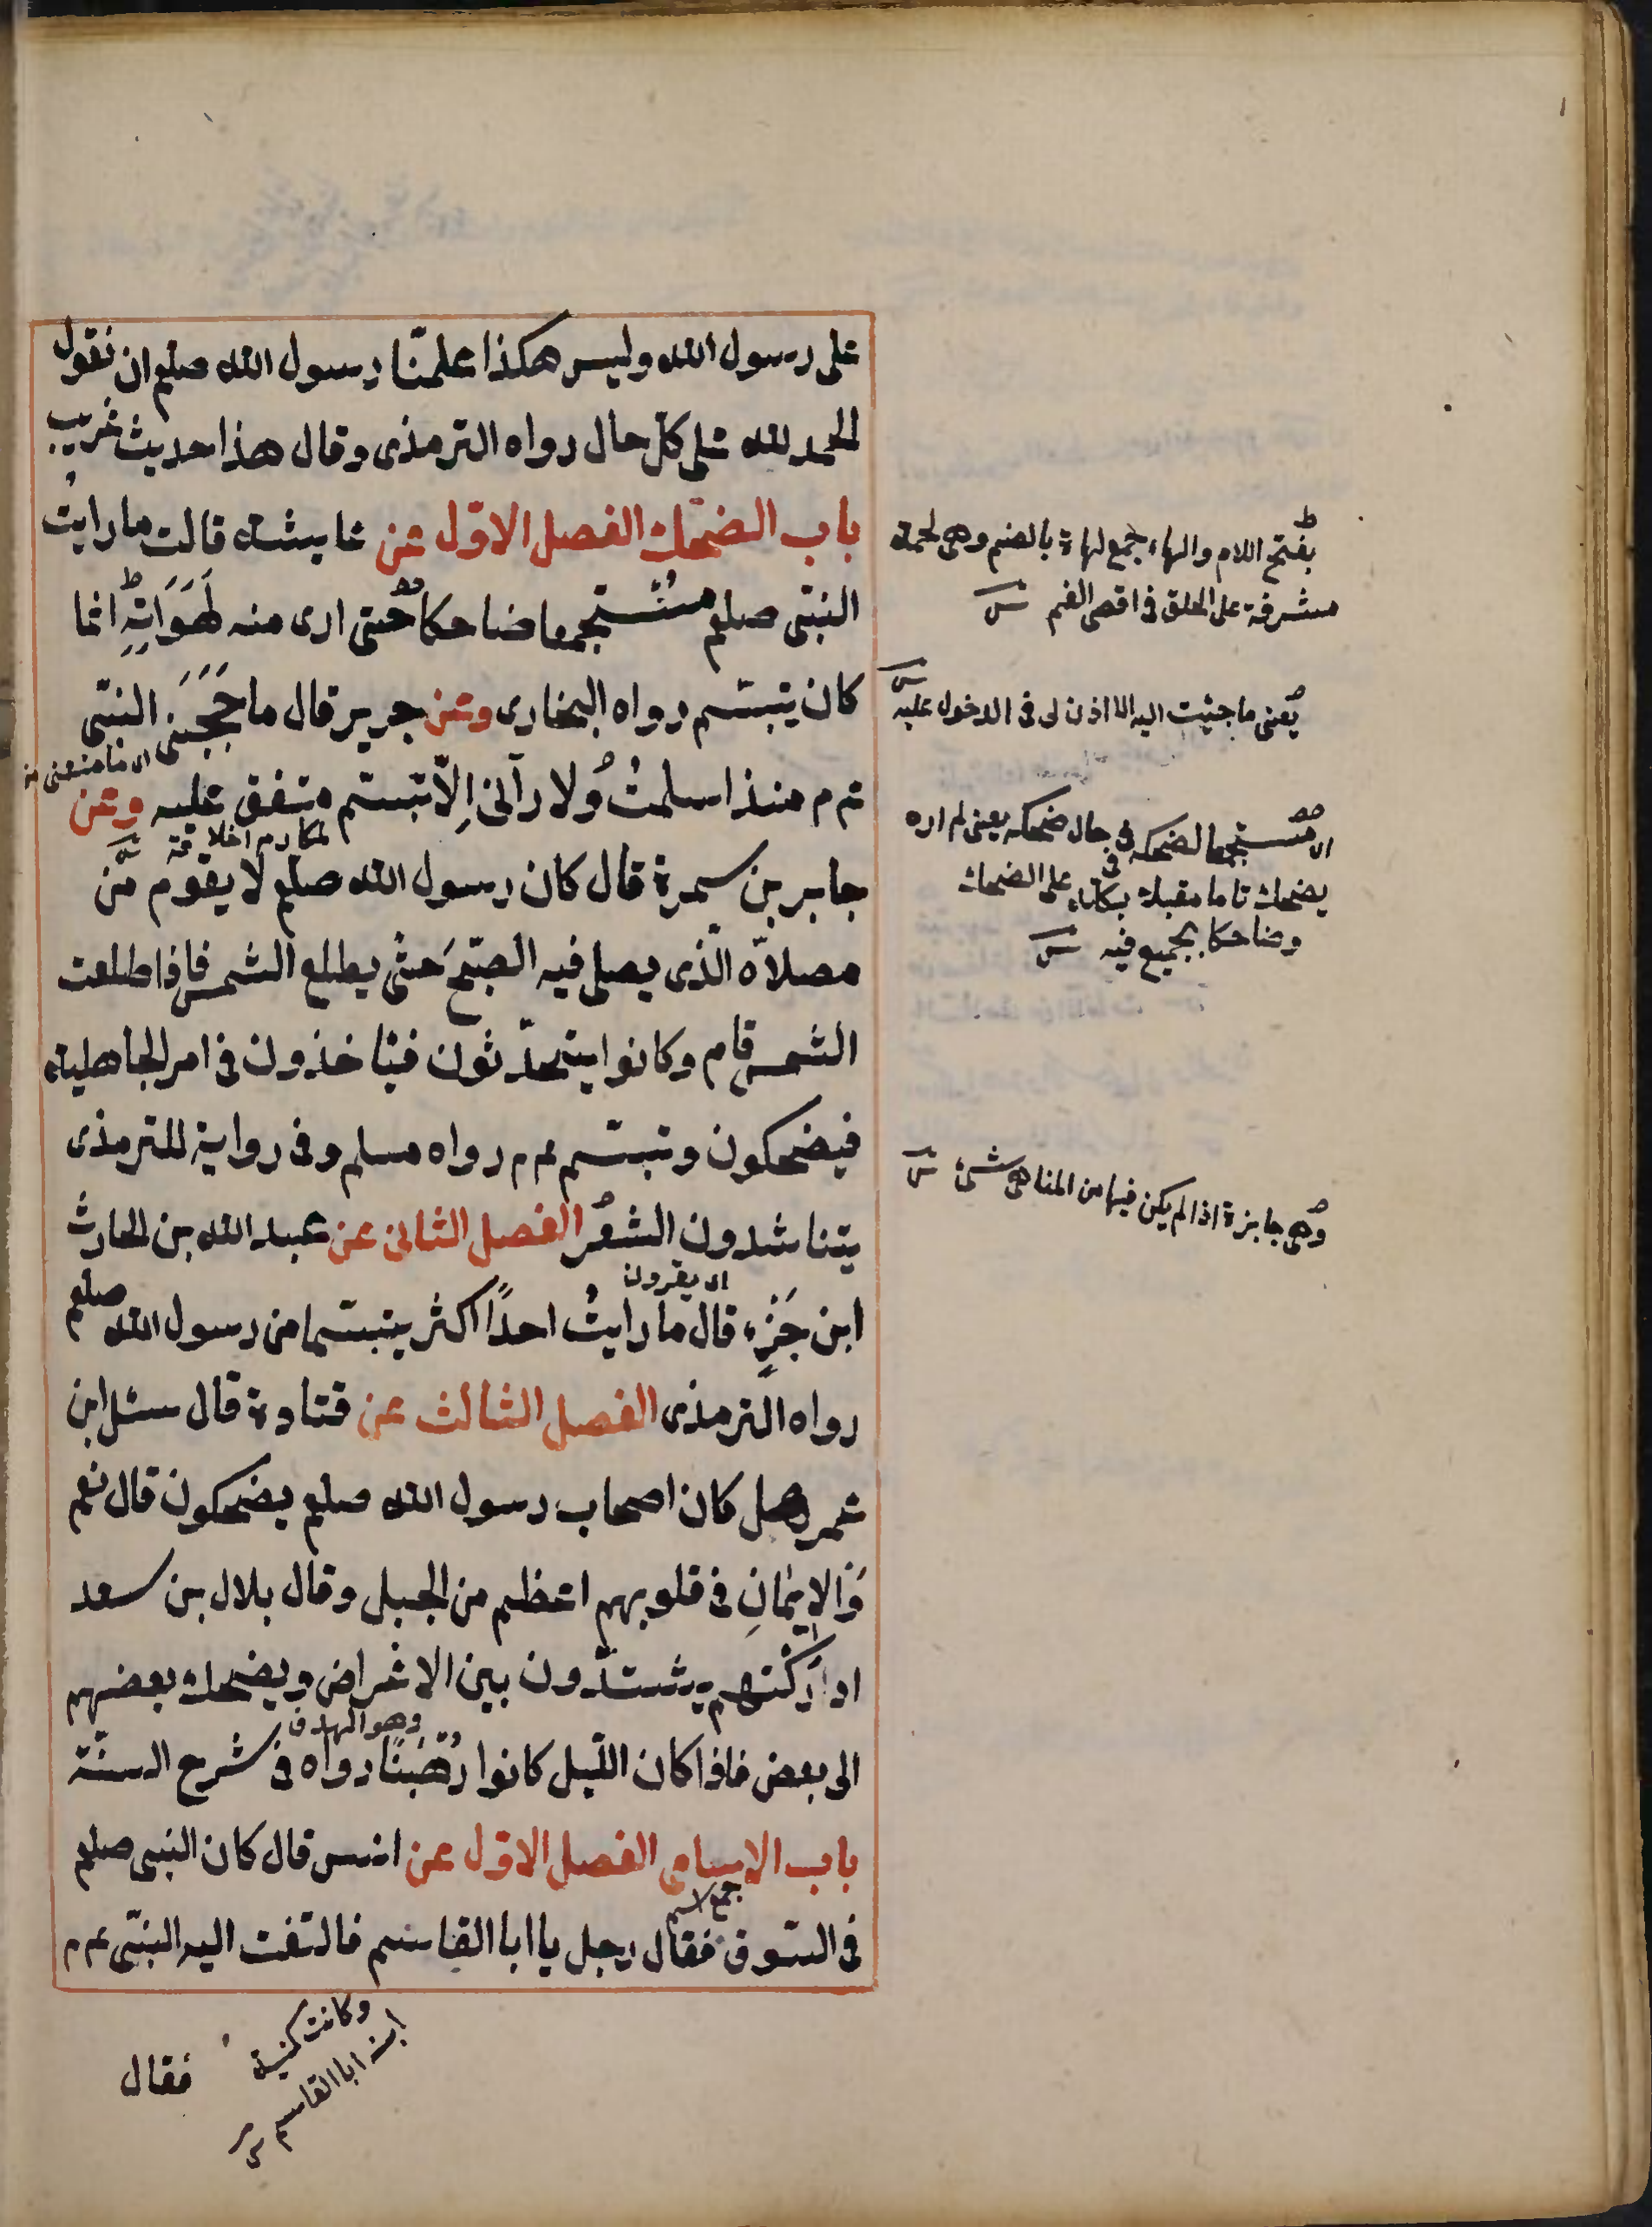 على رسول الله وليس هكذا علمنا رسول الله صلعم ان نقول
الحمد لله على كل حال رواه الترمذى وقال هذا حديث غريب
باب الضحك الفصل الاول عن عايشة قالت ما رايت
النبى صلعم مستجمعا ضاحكا حتى ارى منه لَهَوَاتِهِ انما
كان يتبسم رواه البخارى وعن جرير قال ما حَجَبَنى النبى
اى ما منعنى
عم م منذ اسلمتُ ولا رآنى اِلّا تبسم متفق عليه وعن
لمكارم اخلاقه
جابر بن سمرة قال كان رسول الله صلعم لا يقوم من
مصلاه الّذى يصلى فيه الصبح حتى يطلع الشمس فاذا طلعت
الشمس قام وكانوا يتحدّثون فيأخذون فى امر الجاهلية
فيضحكون وتبسم عم م رواه مسلم وفى رواية للترمذى
يتناشدون الشعر الفصل الثانى عن عبد الله بن الحارث
اى يقرون
ابن جَزْء قال ما رايتُ احدًا اكثر يتبسما من رسول الله صلعم
رواه الترمذى الفصل الثالث عن قتادة قال سئل ابن
عمر هل كان اصحاب رسول الله صلعم يضحكون قال نعم
وَالايمانِ فى قلوبهم اعظم من الجبل وقال بلال بن سعد
ادركتهم يشتدّون بين الاغراض ويضحك بعضهم
وهو الهدف
الى بعض فاذا كان اللّيل كانوا رُهْبَنًا رواه فى شرح السنّة
باب الاسامى الفصل الاول عن انس قال كان النبى صلعم
جمع اسم
فى السّوق فقال رجل يا ابا القاسم فالتفت اليه النبّى عم م
وكانت كنية
ابنه ابا القاسم
فقال
بفتح اللام والهاء جمع لهاة بالضم وهى لحمة
مشرفة على الحلق فى اقصى الفم
يعنى ما جئت اليه الا اذن لى فى الدخول عليه
اى مستجمعا لضحكه فى حال ضحكه يعنى لم اره
يضحك تاما مقبلا بكله على الضحك
وضاحكا بجميع فيه
وهى جايزة اذا لم يكن فيها من المناهى شئ